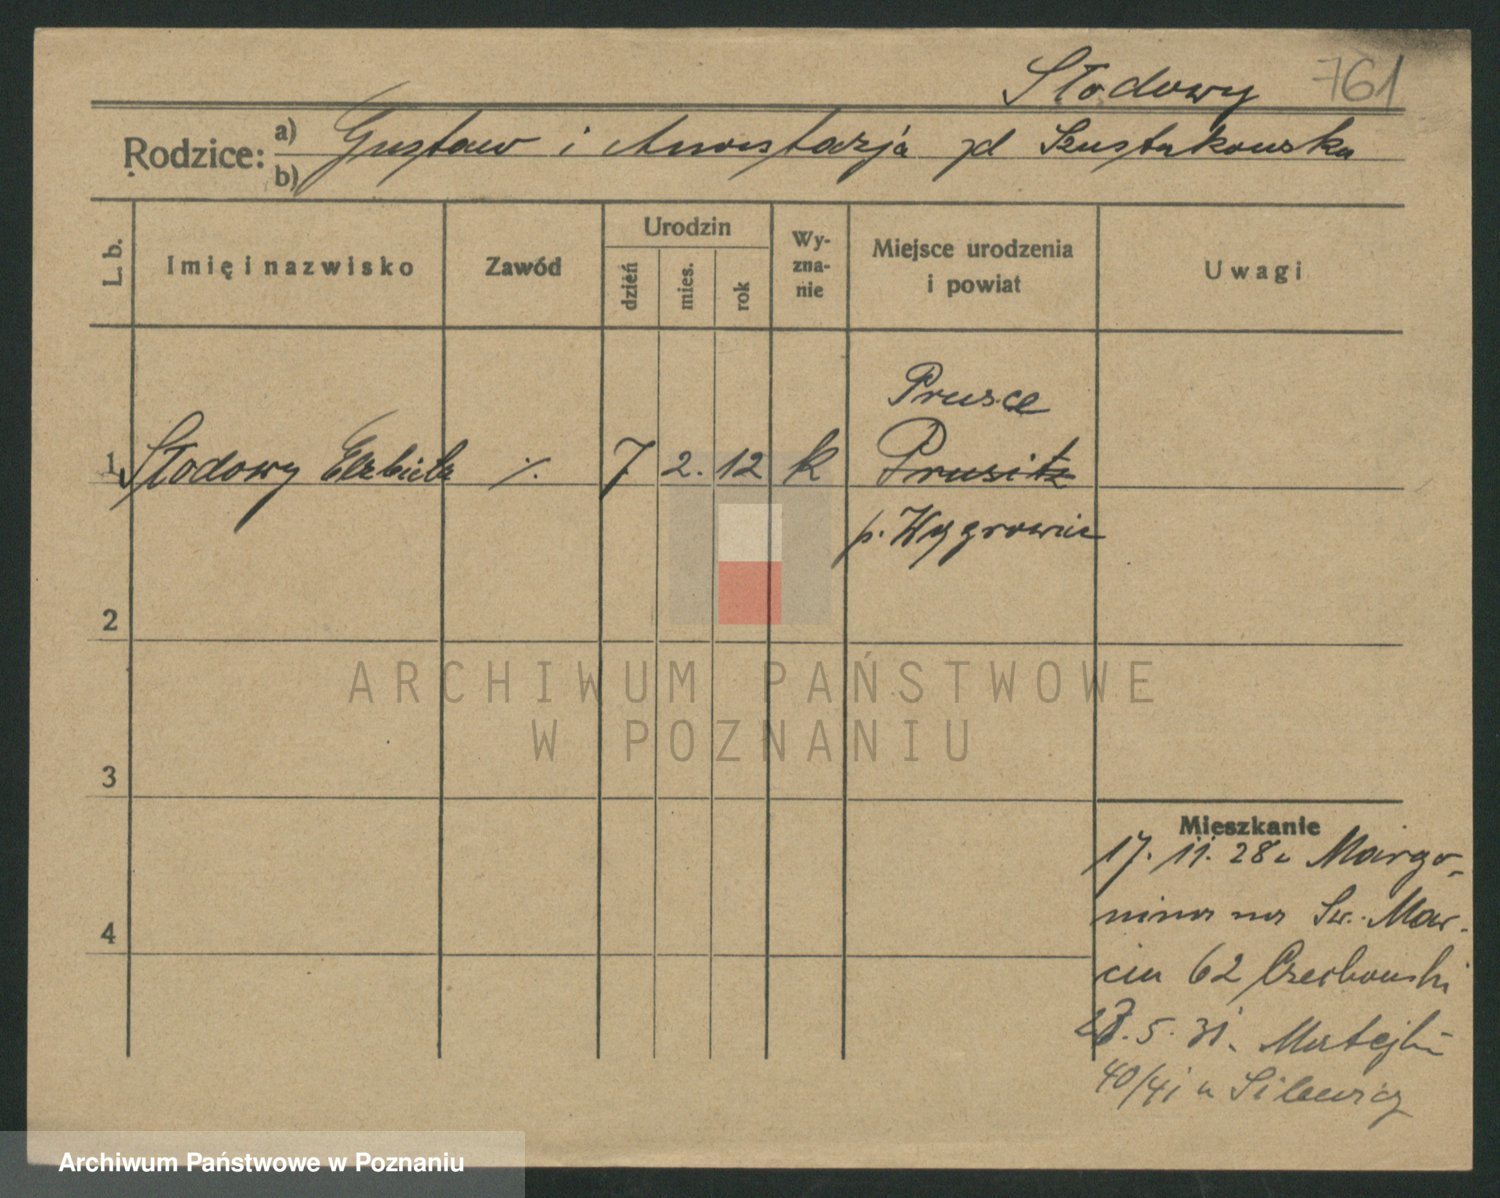 Słodowy 761
Rodzice: a) Gustaw i Anastazja zd Szustakowska
b)
L. b.
Imię i nazwisko
Zawód
Urodzin
dzień
mies.
rok
Wy-
zna-
nie
Miejsce urodzenia
i powiat
Uwagi
Prusce
1 Słodowy Elzbieta ·/. 7 2. 12 k Prusitz
p. Wygrowiec
2
3
4
Mieszkanie
17. 11. 28 z Margo-
nina na Św. Mar-
cin 62 Czechowski
5. 31. Matejki
40/41 u
ARCHIWUM PAŃSTWOWE
W POZNANIU
Archiwum Państwowe w Poznaniu